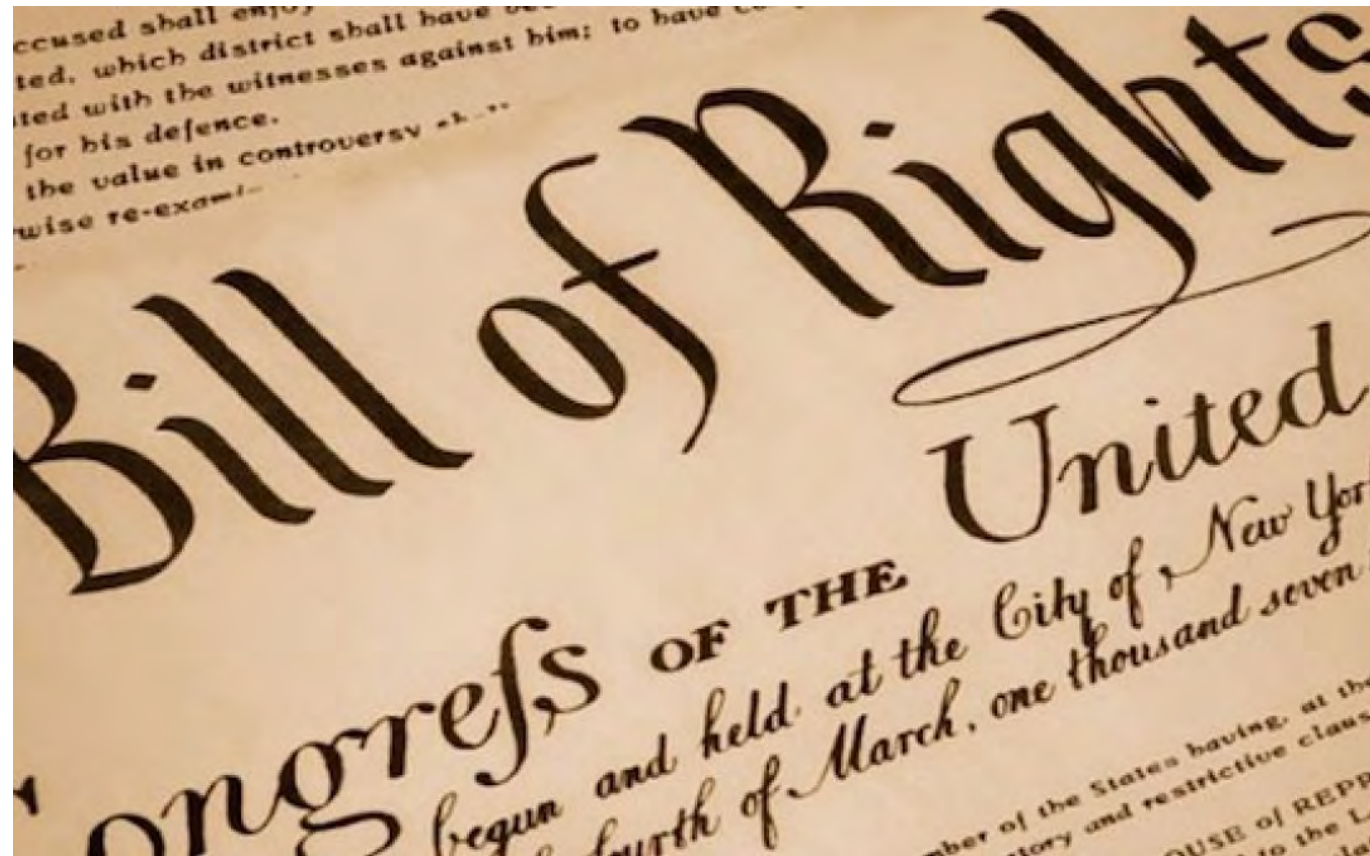 ccused shall enjoy
ted, which district shall have
ted with the witnesses against him; to have
for his defence.
the value in controversy
wise re-exam
Bill of Rights
Congreſs OF THE United
begun and held at the City of New York
fourth of March, one thousand seven
mber of the States having, at the
tory and restrictive claus
OUSE of REPR
to the L